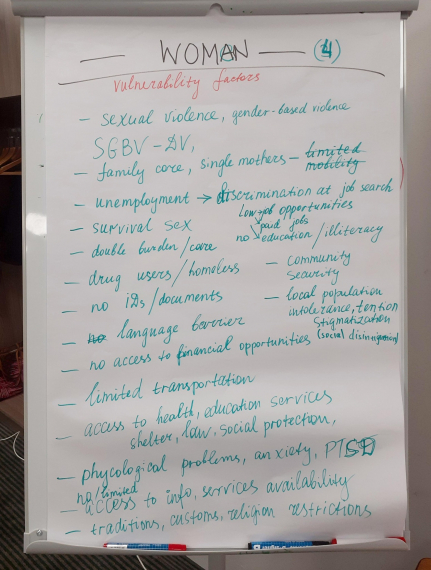 — WOMAN — (4)
vulnerability factors
— sexual violence, gender-based violence
SGBV - DV,
— family care, single mothers — limited mobility
— unemployment → discrimination at job search
low job opportunities
paid jobs
— survival sex
no → education / illiteracy
— double burden / care
— community security
— drug users / homeless
— no IDs / documents
— local population
intolerance, tention
Stigmatization
— no language barrier
— no access to financial opportunities (social
— limited transportation
— access to health, education services
shelter, law, social protection,
— phycological problems, anxiety, PTSD
no/limited
— access to info, services availability
— traditions, customs, religion restrictions